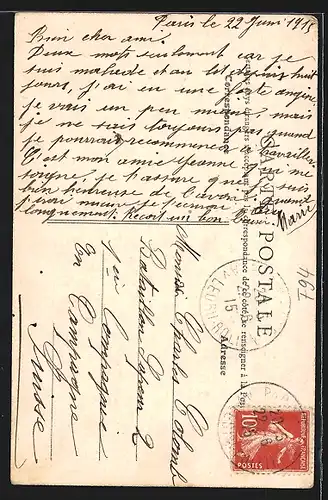 Paris le 22 Juin 1915
Bien cher ami.
Deux mots seulement car je
suis malade et au lit depuis huit
jours, j'ai eu une forte angine,
je vais un peu mieux, mais
je ne sais toujours pas quand
je pourrai recommencer à travailler.
C'est mon amie Jeanne qui me
soigne, je t'assure que je suis
bien heureuse de l'avoir quand
j'irai mieux je t'écrirai plus
longuement. Reçoit un bon baiser
Marie
CARTE POSTALE
Correspondance
Adresse
Monsieur Charles
Bataillon 2
Compagnie
En Campagne
Suisse
794
15
10c
POSTES